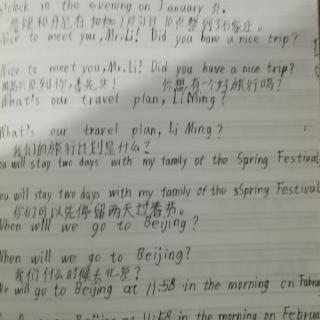 o'clock in the evening on January 31.
詹妮和丹尼在 月 日 点 到了石家庄。
Nice to meet you,Mr.Li! Did you have a nice trip?
Nice to meet you,Mr.Li! Did you have a nice trip?
很高兴见到你,李先生! 你想有一个好旅行吗?
What's our travel plan, Li Ming?
What's our travel plan, Li Ming?
我们的旅行计划是什么?
ou will stay two days with my family of the Spring Festival
ou will stay two days with my family of the sSpring Festival
你们可以先停留两天过春节。
When will we go to Beijing?
When will we go to Beijing?
我们什么时候去北京?
We will go to Beijing at 11:58 in the morning on Februa
Beijing at 11:58 in the morning on Februa